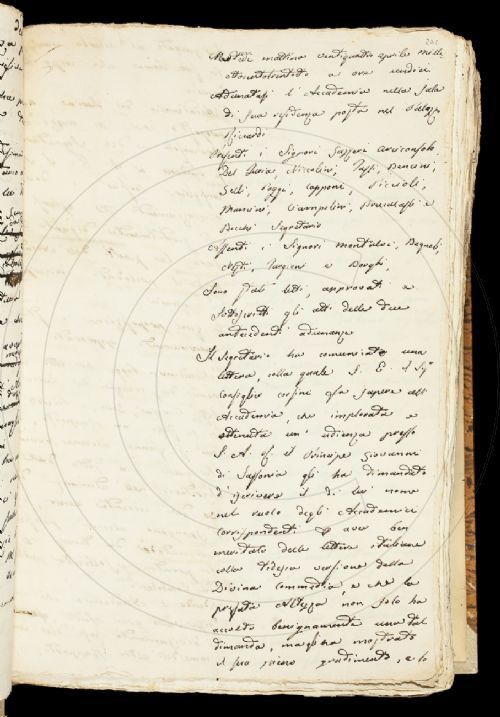 201
Martedì mattina ventiquattro aprile mille
ottocentotrentotto a ore undici
Adunatasi l'Accademia nella sala
di sua residenza posta nel Palazzo
Riccardi
Presenti i Signori Gazzeri Arciconsolo,
Del Furia, Niccolini, Bencini,
Selli, Poggi, Capponi,
Mancini, Ciampolini, Brucalassi e
Becchi Segretario
Assenti i Signori Montalvi, Bagnoli,
Nesti, e Borghi,
Sono stati letti, approvati e
sottoscritti gli atti delle due
antecedenti adunanze
Il Segretario ha comunicato una
lettera, colla quale S. E. il Sig.
Consiglier Corsini fa sapere all'
Accademia, che implorata e
ottenuta un'udienza presso
S. A. il Principe Giovanni
di Sassonia gli ha dimandato
d'iscrivere il di lui nome
nel ruolo degli Accademici
corrispondenti p aver ben
meritato delle lettere italiane
colla tedesca versione della
Divina Commedia, e che la
prefata Altezza non solo ha
accolto benignamente una tal
dimanda, ma glie ha mostrato
il suo gradimento, e lo